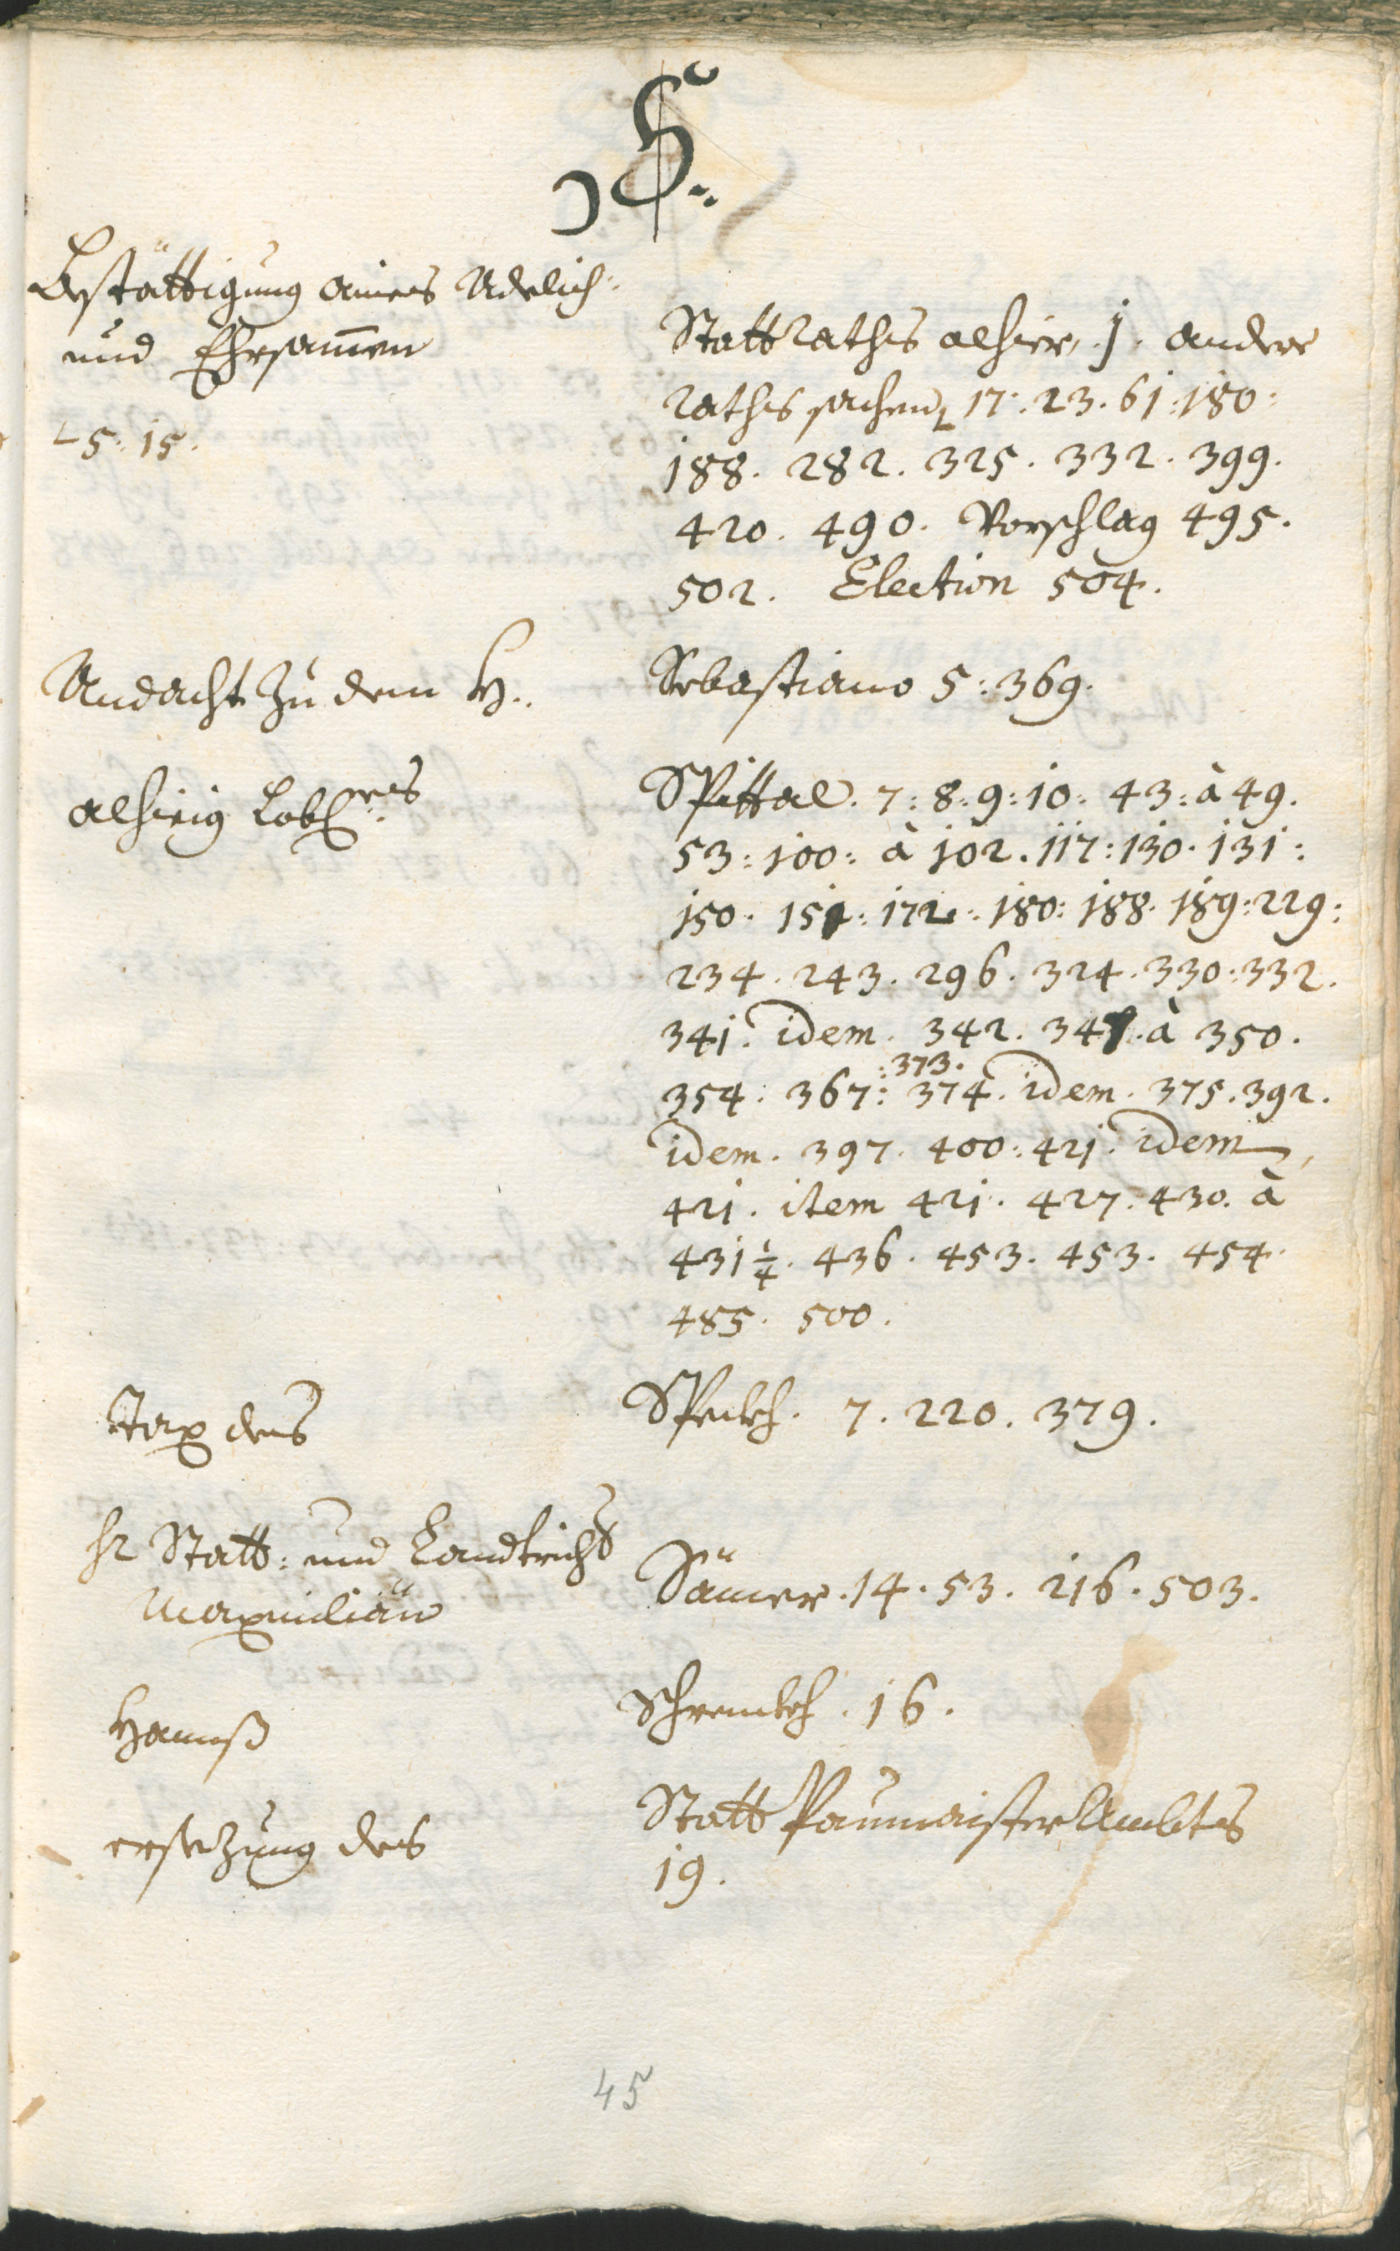 S.
Bestättigung aines Adelich:
und Ehrsamen
Stattrathes alhier, 1. andere
rathes sachen 17. 23. 61: 180:
∟5: 15.
188. 282. 325. 332. 399.
420. 490. Vorschlag 495.
502. Election 504.
Andacht zu dem H.
Sebastiano 5: 369.
alhieig Lobl.es
Spittal. 7: 8: 9: 10: 43: à 49.
53: 100: à 102. 117: 130. 131:
150. 151: 172: 180: 188. 189: 229:
234. 243. 296. 324. 330: 332.
341. idem. 342. 347. à 350.
: 373.
354: 367: 374. idem. 375. 392.
idem. 397. 400: 421. idem,
421. item 421. 427. 430. à
431 1/4. 436. 453. 453. 454.
485. 500.
Tax des
Speckh. 7. 220. 379.
hr Statt: und Landtricht
Maximilian
Sämer. 14. 53. 216. 503.
Hannß
Schrenkh. 16.
ersetzung des
Statt Paumaister Ambtes
19.
45